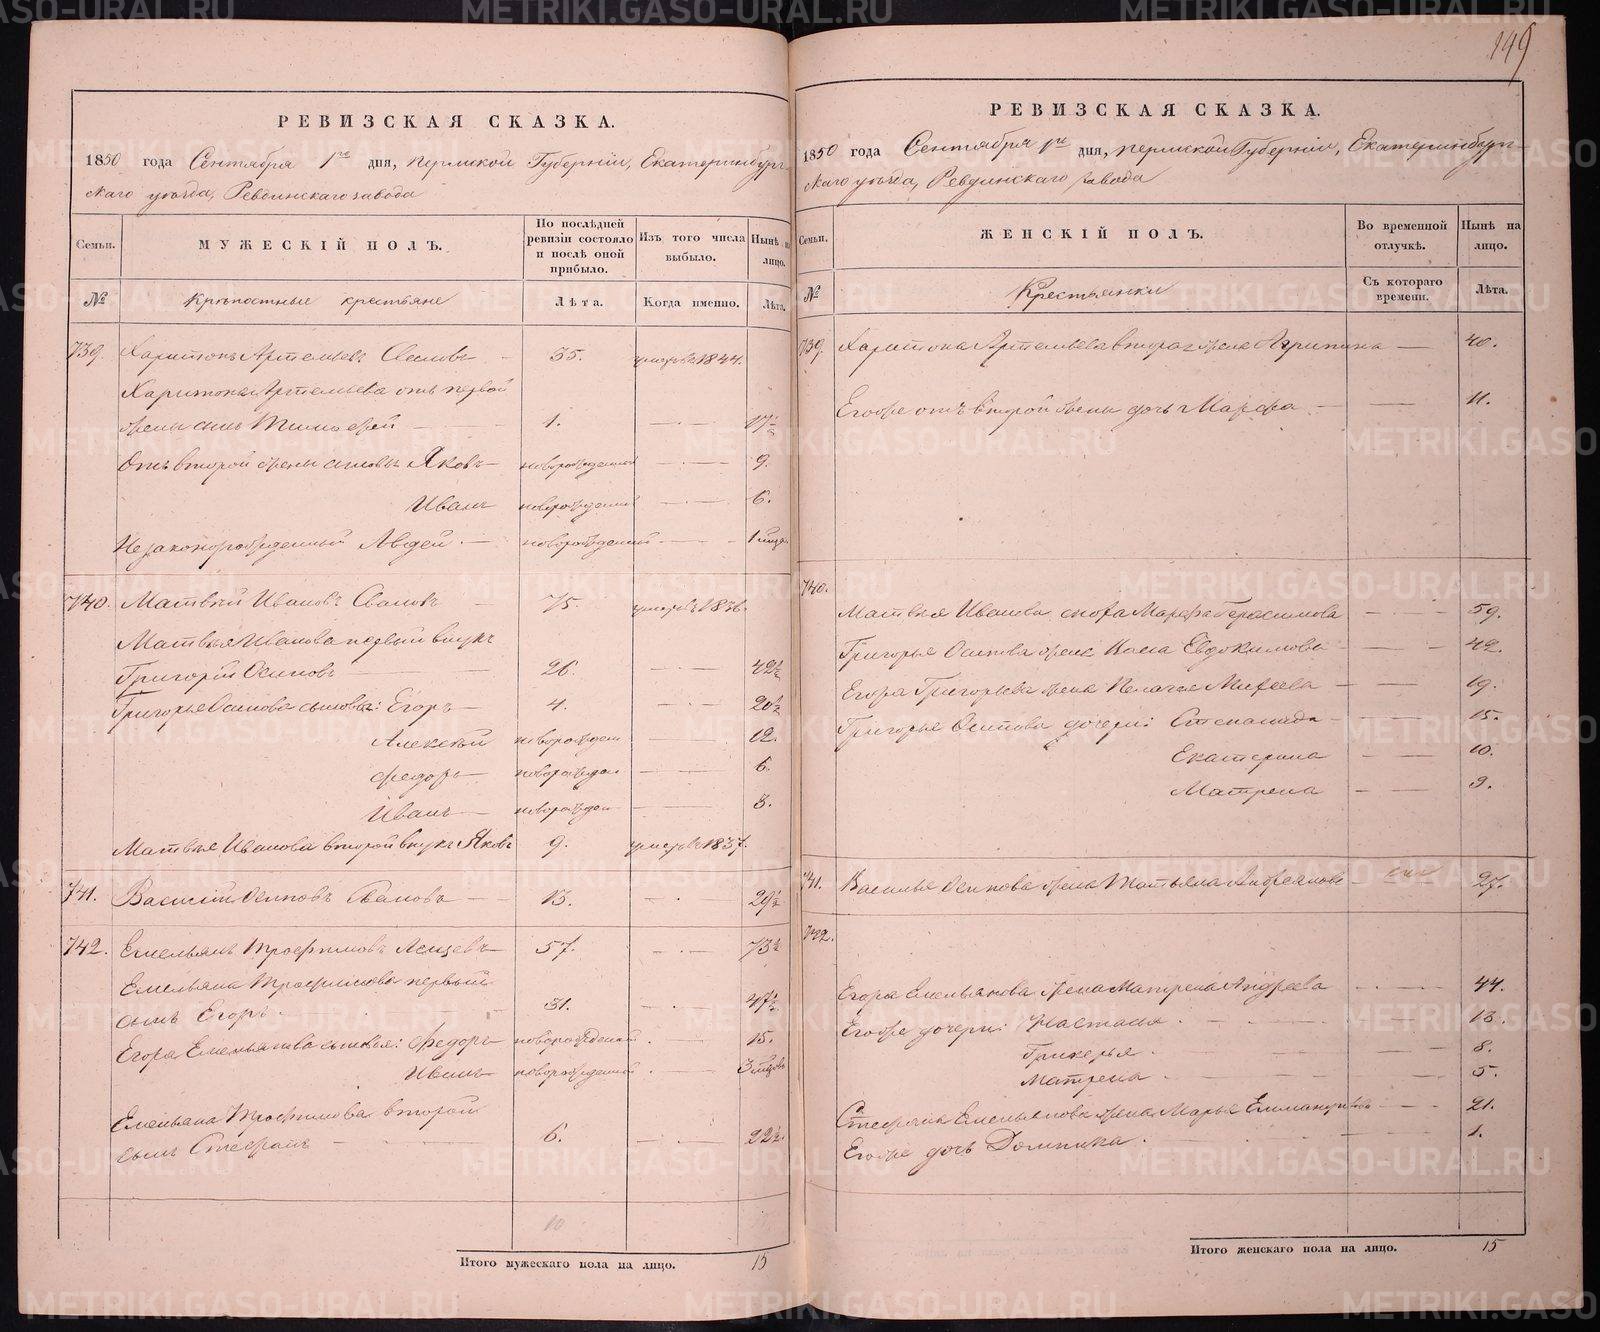 149
РЕВИЗСКАЯ СКАЗКА.
1850 года Сентября 1го дня, Пермской Губерніи, Екатеринбург-
скаго уѣзда, Ревдинскаго завода
Семьи.
МУЖЕСКІЙ ПОЛЪ.
По послѣдней ревизіи состояло и послѣ оной прибыло.
Изъ того числа выбыло.
Нынѣ на лицо.
№
Крѣпостные крестьяне
Лѣта.
Когда именно.
Лѣта.
739. Харитонъ Артемьевъ 35. умеръ въ 1844.
Харитона Артемьева отъ первой
жены сынъ Тимофей 1. 17½
Отъ второй жены сыновья Яковъ новорожденный 9.
Иванъ новорожденный 6.
Незаконорожденный Авдей новорожденный 1 мѣся.
740. Матвѣй Ивановъ 75. умеръ въ 1836.
Матвѣя Иванова первый внукъ
Григорій Осиповъ 26. 42½
Григорья Осипова сыновья: Егоръ 4. 20½
Алексѣй новорожден 12.
Федоръ новорожден 6.
Иванъ новорожден 3.
Матвѣя Иванова второй внукъ Яковъ 9. умеръ въ 1837.
741. Василій Осиповъ 13. 29½
742. Емельянъ Трофимовъ 57. 73½
Емельяна Трофимова первый
сынъ Егоръ 31. 47½
Егора Емельянова сыновья: Федоръ новорожденный 15.
Иванъ новорожденный 3 мѣсяцовъ
Емельяна Трофимова второй
сынъ Стефанъ 6. 22½
10
Итого мужескаго пола на лицо. 15
РЕВИЗСКАЯ СКАЗКА.
1850 года Сентября 1го дня, Пермской Губерніи, Екатеринбург-
скаго уѣзда, Ревдинскаго завода
Семьи.
ЖЕНСКІЙ ПОЛЪ.
Во временной отлучкѣ.
Нынѣ на лицо.
№
Крестьянки
Съ котораго времени.
Лѣта.
739. Харитона Артемьева вторая жена Агрипина 40.
Егожъ отъ второй жены дочь Марфа 11.
740.
Матвѣя Иванова сноха Марфа Герасимова 59.
Григорья Осипова жена Евдокимова 42.
Егора Григорьева жена Пелагея 19.
Григорья Осипова дочери: Степанида 15.
Екатерина 10.
Матрена 9.
741. Василья Осипова жена Татьяна Андреянова 27.
742.
Егора Емельянова жена Матрена Андреева 44.
Егожъ дочери: Настасья 13.
Гликерья 8.
Матрена 5.
Стефана Емельянова жена Марья 21.
Егожъ дочь Домника 1.
Итого женскаго пола на лицо. 15
METRIKI.GASO-URAL.RU